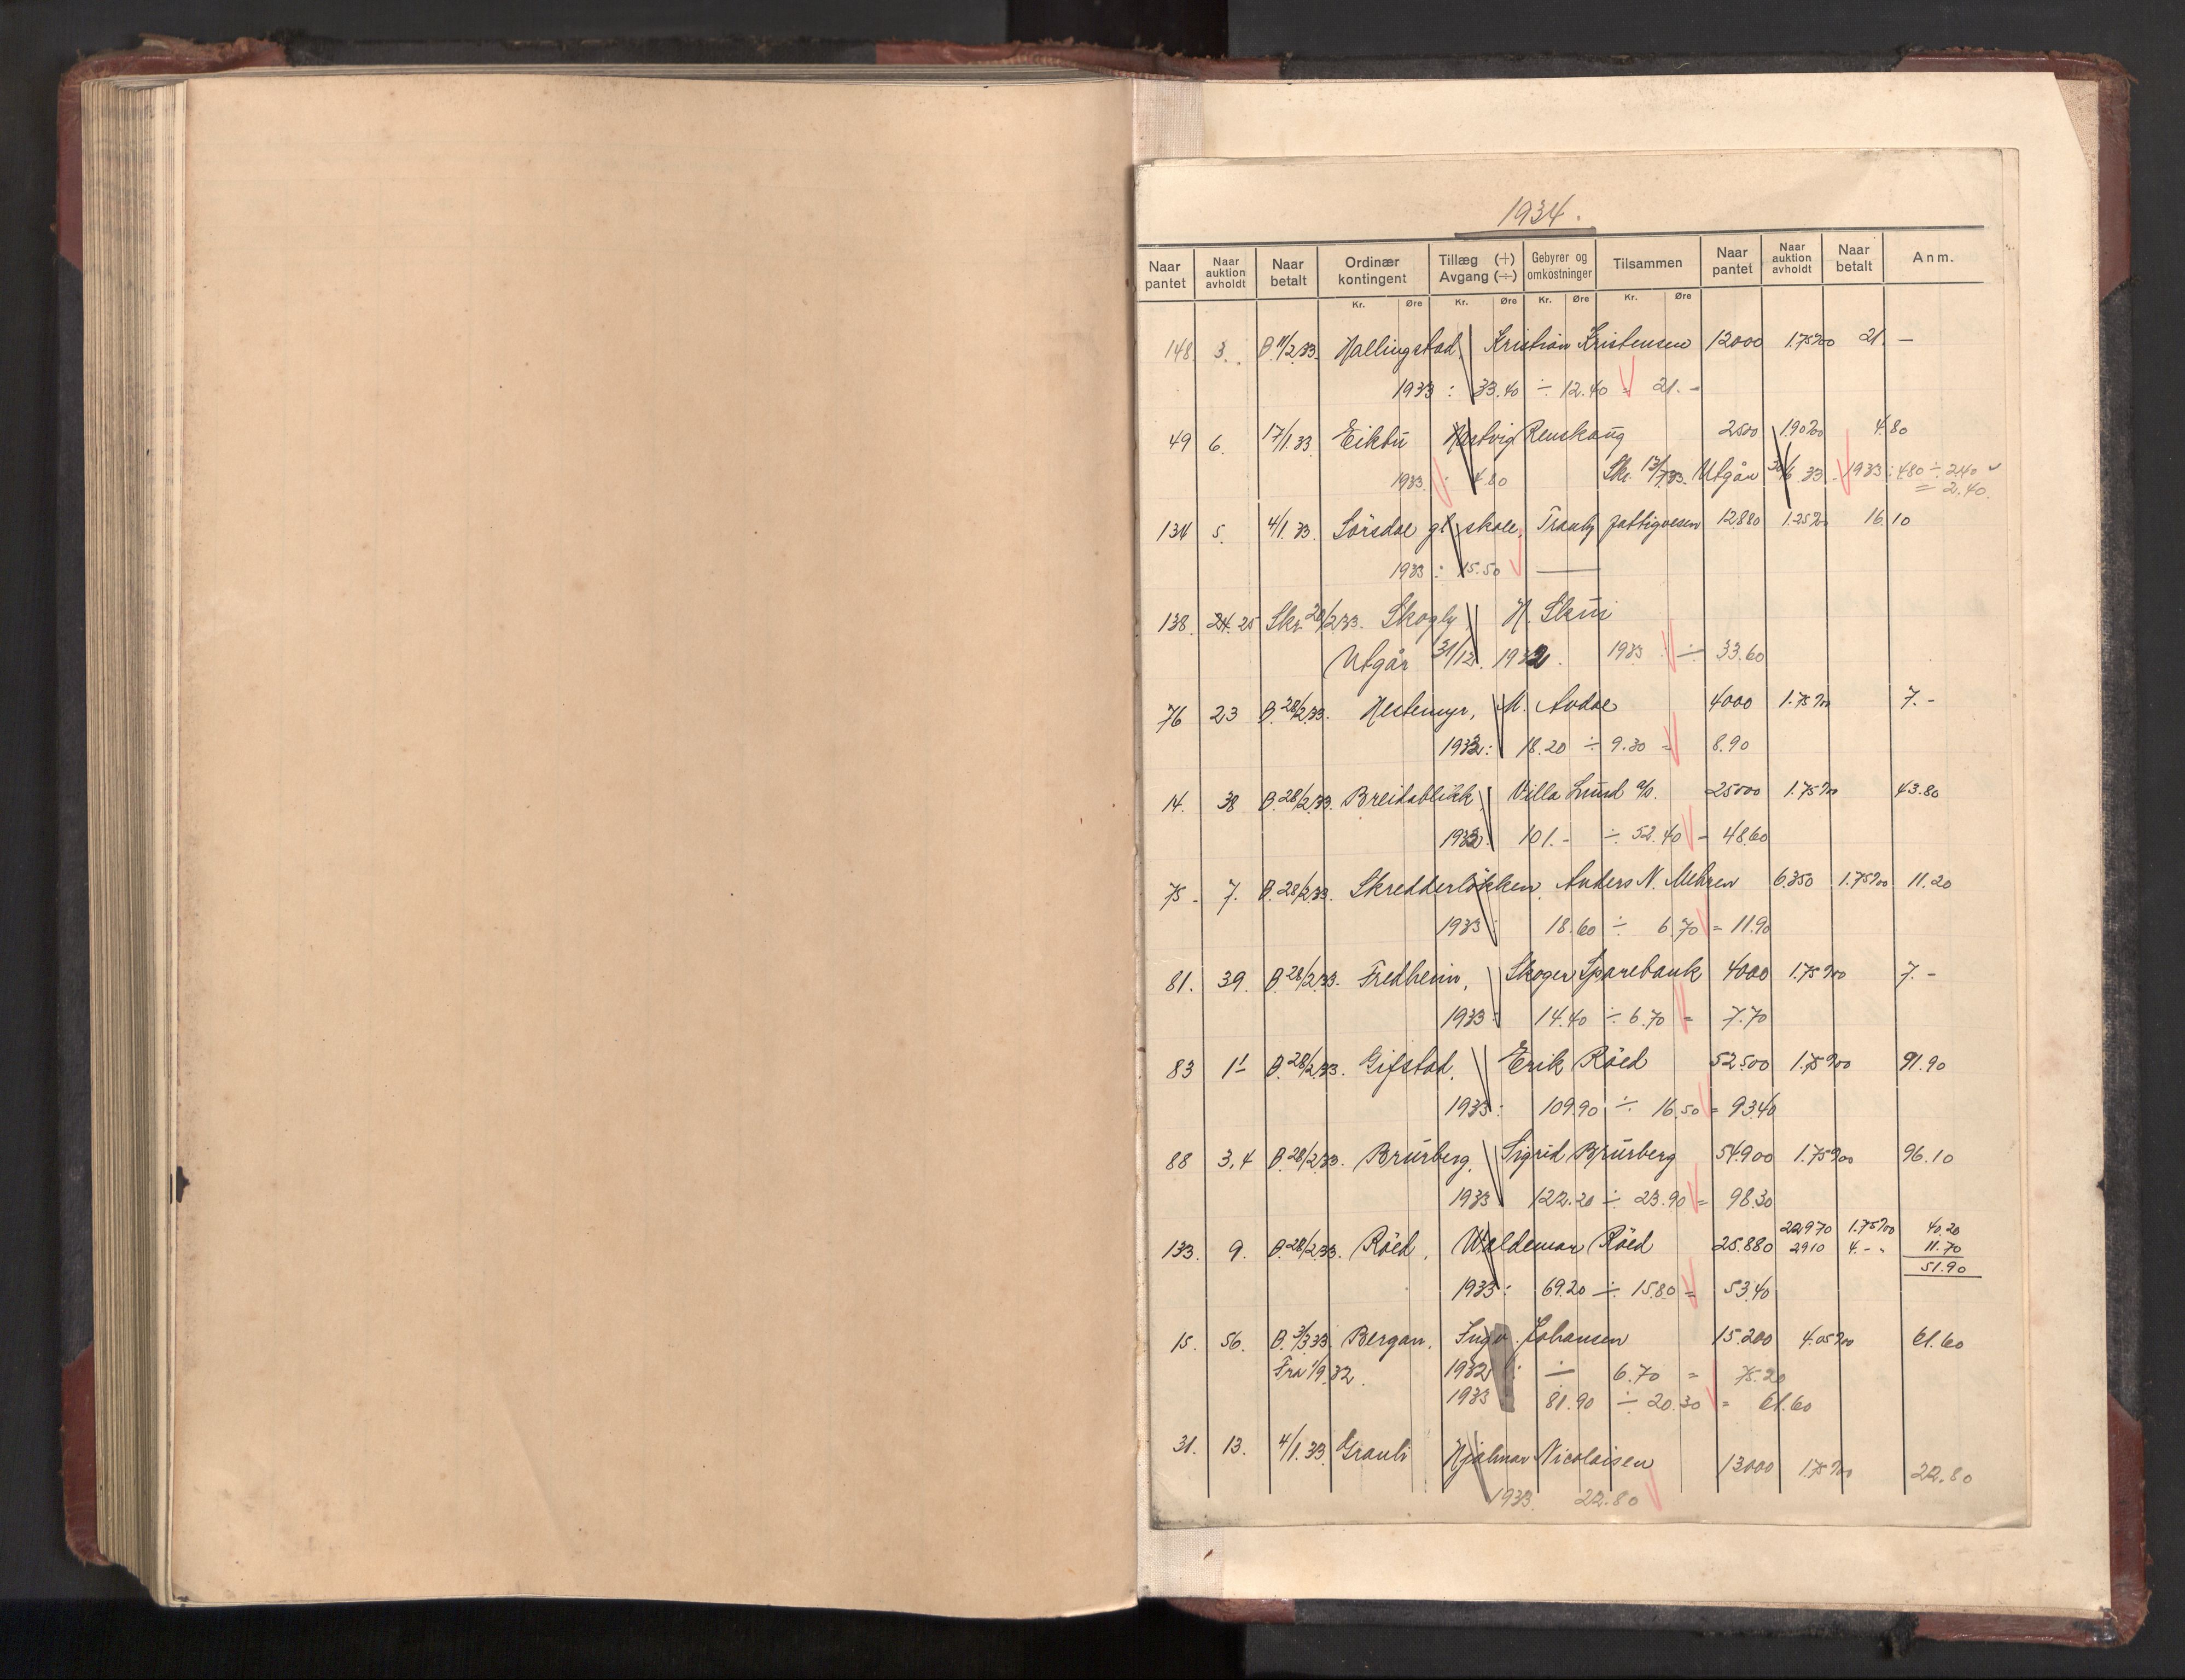 1934.
Naar pantet Naar auktion avholdt Naar betalt Ordinær kontingent Tillæg (+) Avgang (÷) Gebyrer og omkostninger Tilsammen Naar pantet Naar auktion avholdt Naar betalt Anm.
Kr. Øre Kr. Øre Kr. Øre Kr. Øre
148 3. B. 11/2.33. Hallingstad, Kristian Kristensen 12000 1.75‰ 21. –
1933 : 33.40 ÷ 12.40 = 21. –
49 6. 17/1.33 Eikbu Hartvig Renskaug 2500 1.90‰ 4.80
1933. : 4.80 Skr. 13/7.33. Utgår 30/6 33. 1933 : 4.80 ÷ 2.40
= 2.40.
134 5. 4/1.33. Sørsdal gl. skole, Tranby fattigvesen 12.880 1.25‰ 16.10
1933 : 15.50 —
138. 24. 25 Skr. 20/2.33. Skogly H. Skui
Utgår 31/12. 1932. 1933 : ÷ 33.60
76 23 B. 28/2.33. Hestemyr, M. Avdal 4000 1.75‰ 7. –
1933 : 18.20 ÷ 9.30 = 8.90
14. 38 B. 28/2.33. Breidablikk, Villa Lund a/s. 25000 1.75‰ 43.80
1933 : 101. – ÷ 52.40 = 48.60
75 – 7. B. 28/2.33. Skredderløkken, Anders N. Mehren 6.350 1.75‰ 11.20
1933 : 18.60 ÷ 6.70 = 11.90
81. 39. B. 28/2.33. Fredheim, Skoger Sparebank 4000 1.75‰ 7. –
1933 : 14.40 ÷ 6.70 = 7.70
83 1 B. 28/2.33. Gifstad, Erik Röed 52.500 1.75‰ 91.90
1933 : 109.90 ÷ 16.50 = 93.40
88 3,4 B. 28/2.33. Brurberg, Sigrid Brurberg 54.900 1.75‰ 96.10
1933 122.20 ÷ 23.90 = 98.30
22970 1.75‰ 40.20
133. 9. B. 28/2.33. Röed, Waldemar Röed 25.880 2910 4. – " 11.70
51.90
1933 : 69.20 ÷ 15.80 = 53.40
15. 56. B. 3/3.33. Bergan, Ingv. Johansen 15.200 4.05‰ 61.60
Fra 1/9.32. 1932 : ÷ 6.70 = 75.20
1933 : 81.90 ÷ 20.30 = 61.60
31. 13. 4/1.33. Granli Hjalmar Nicolaisen 13000 1.75‰ 22.80
1933. 22.80